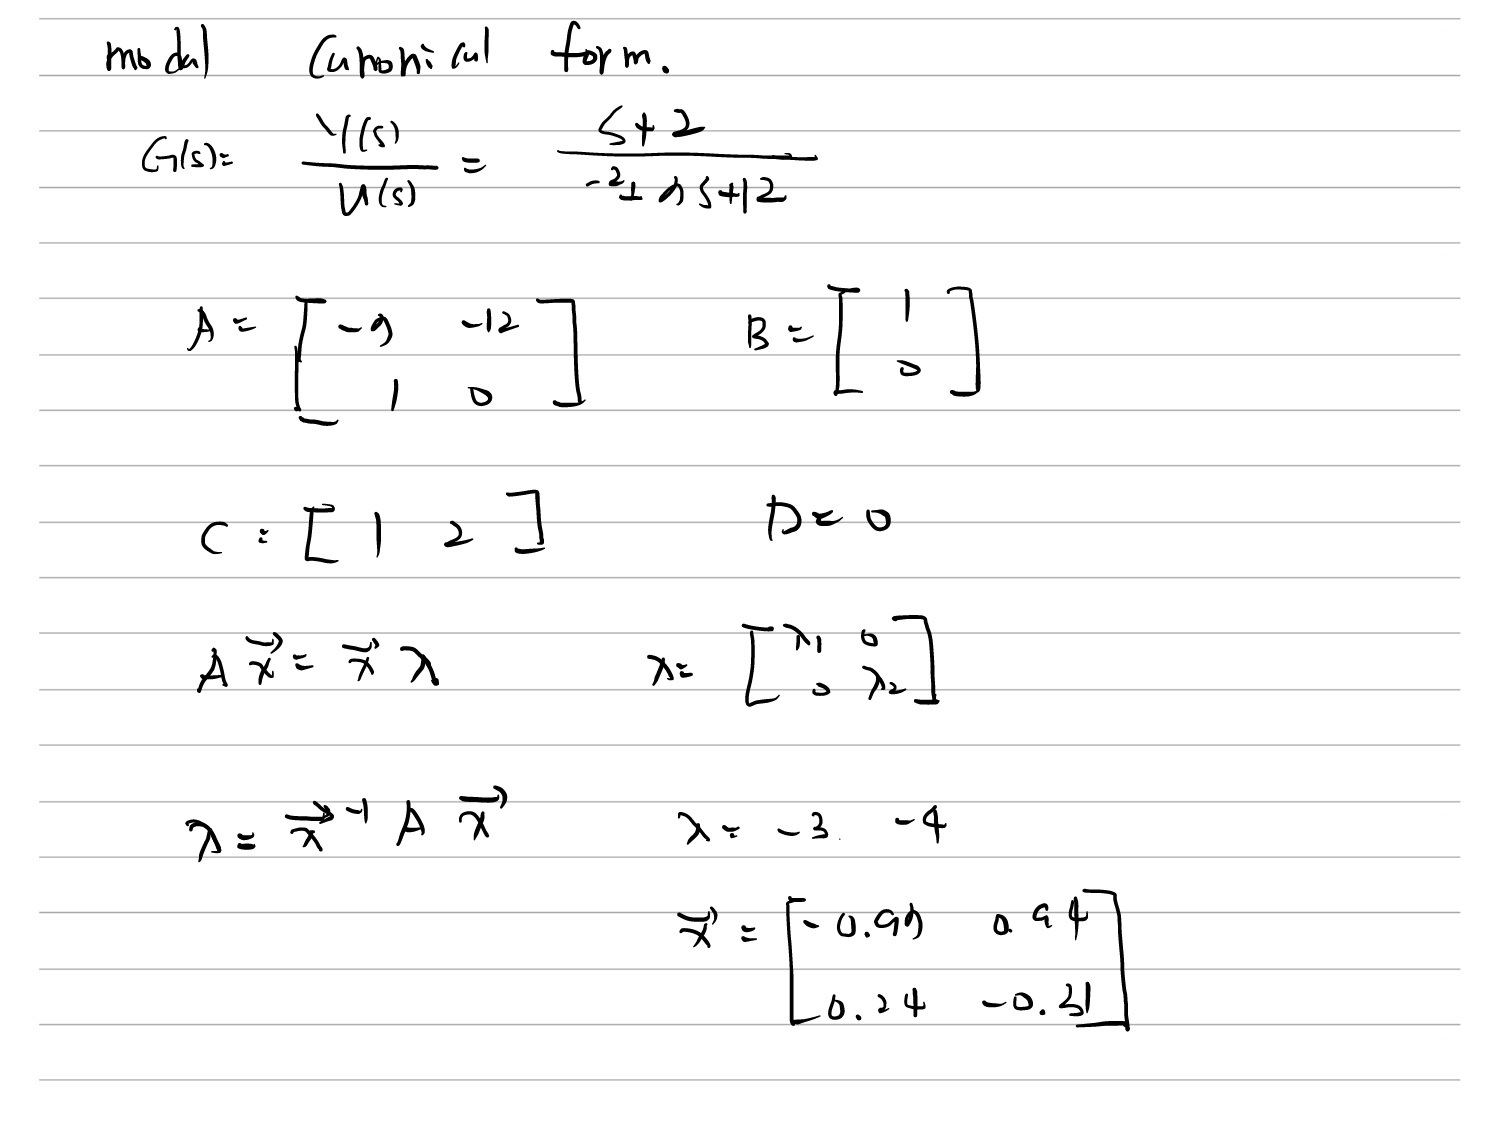 modal canonical form.
G(s) = Y(s) / U(s) = s+2 / s²+7s+12
A = [ -7 -12 ; 1 0 ] B = [ 1 ; 0 ]
C = [ 1 2 ] D = 0
A x⃗ = x⃗ λ λ = [ λ1 0 ; 0 λ2 ]
λ = x⃗⁻¹ A x⃗ λ = -3. -4
x⃗ = [ -0.97 0.94 ; 0.24 -0.31 ]